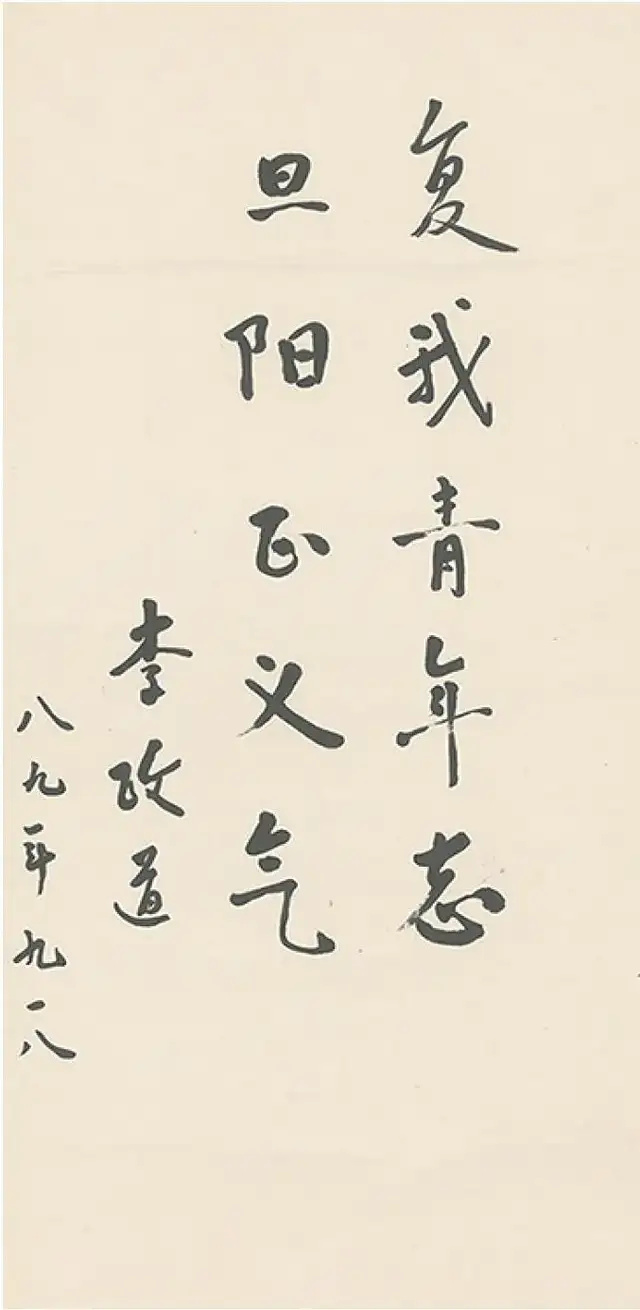 复我青年志
旦阳正义气
李政道
八九年九一八